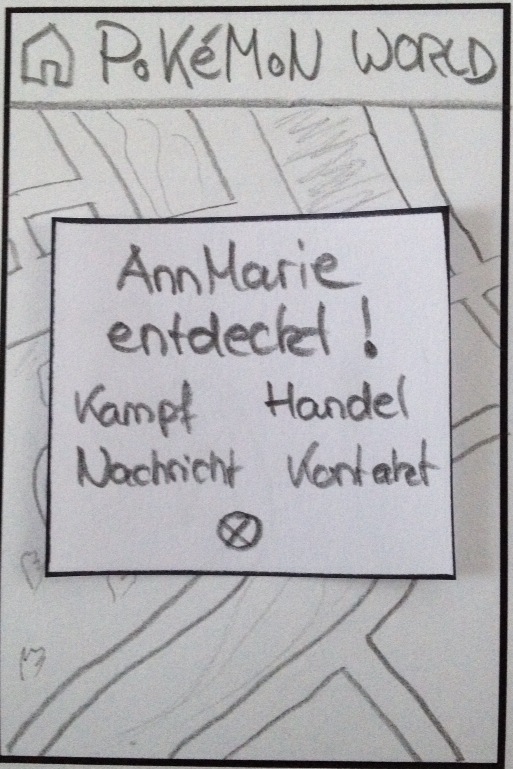 PoKéMoN WORLD
AnnMarie
entdeckt !
Kampf Handel
Nachricht Kontakt